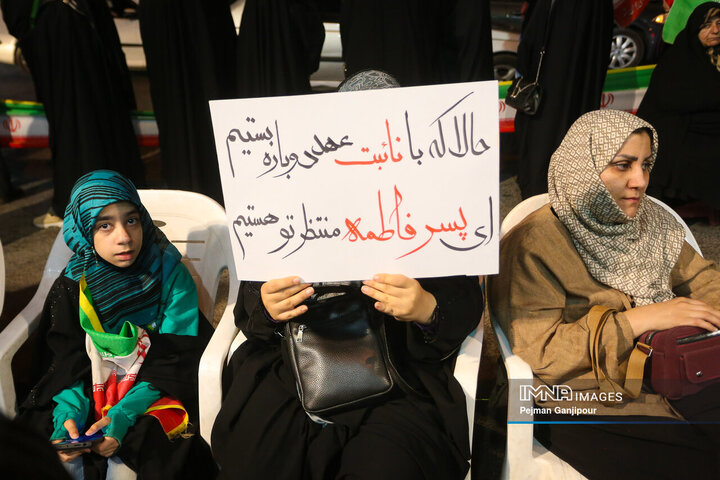 حالا که با نائبت عهدی دوباره بستیم
ای پسر فاطمه منتظر تو هستیم
IMNA IMAGES
Pejman Ganjipour